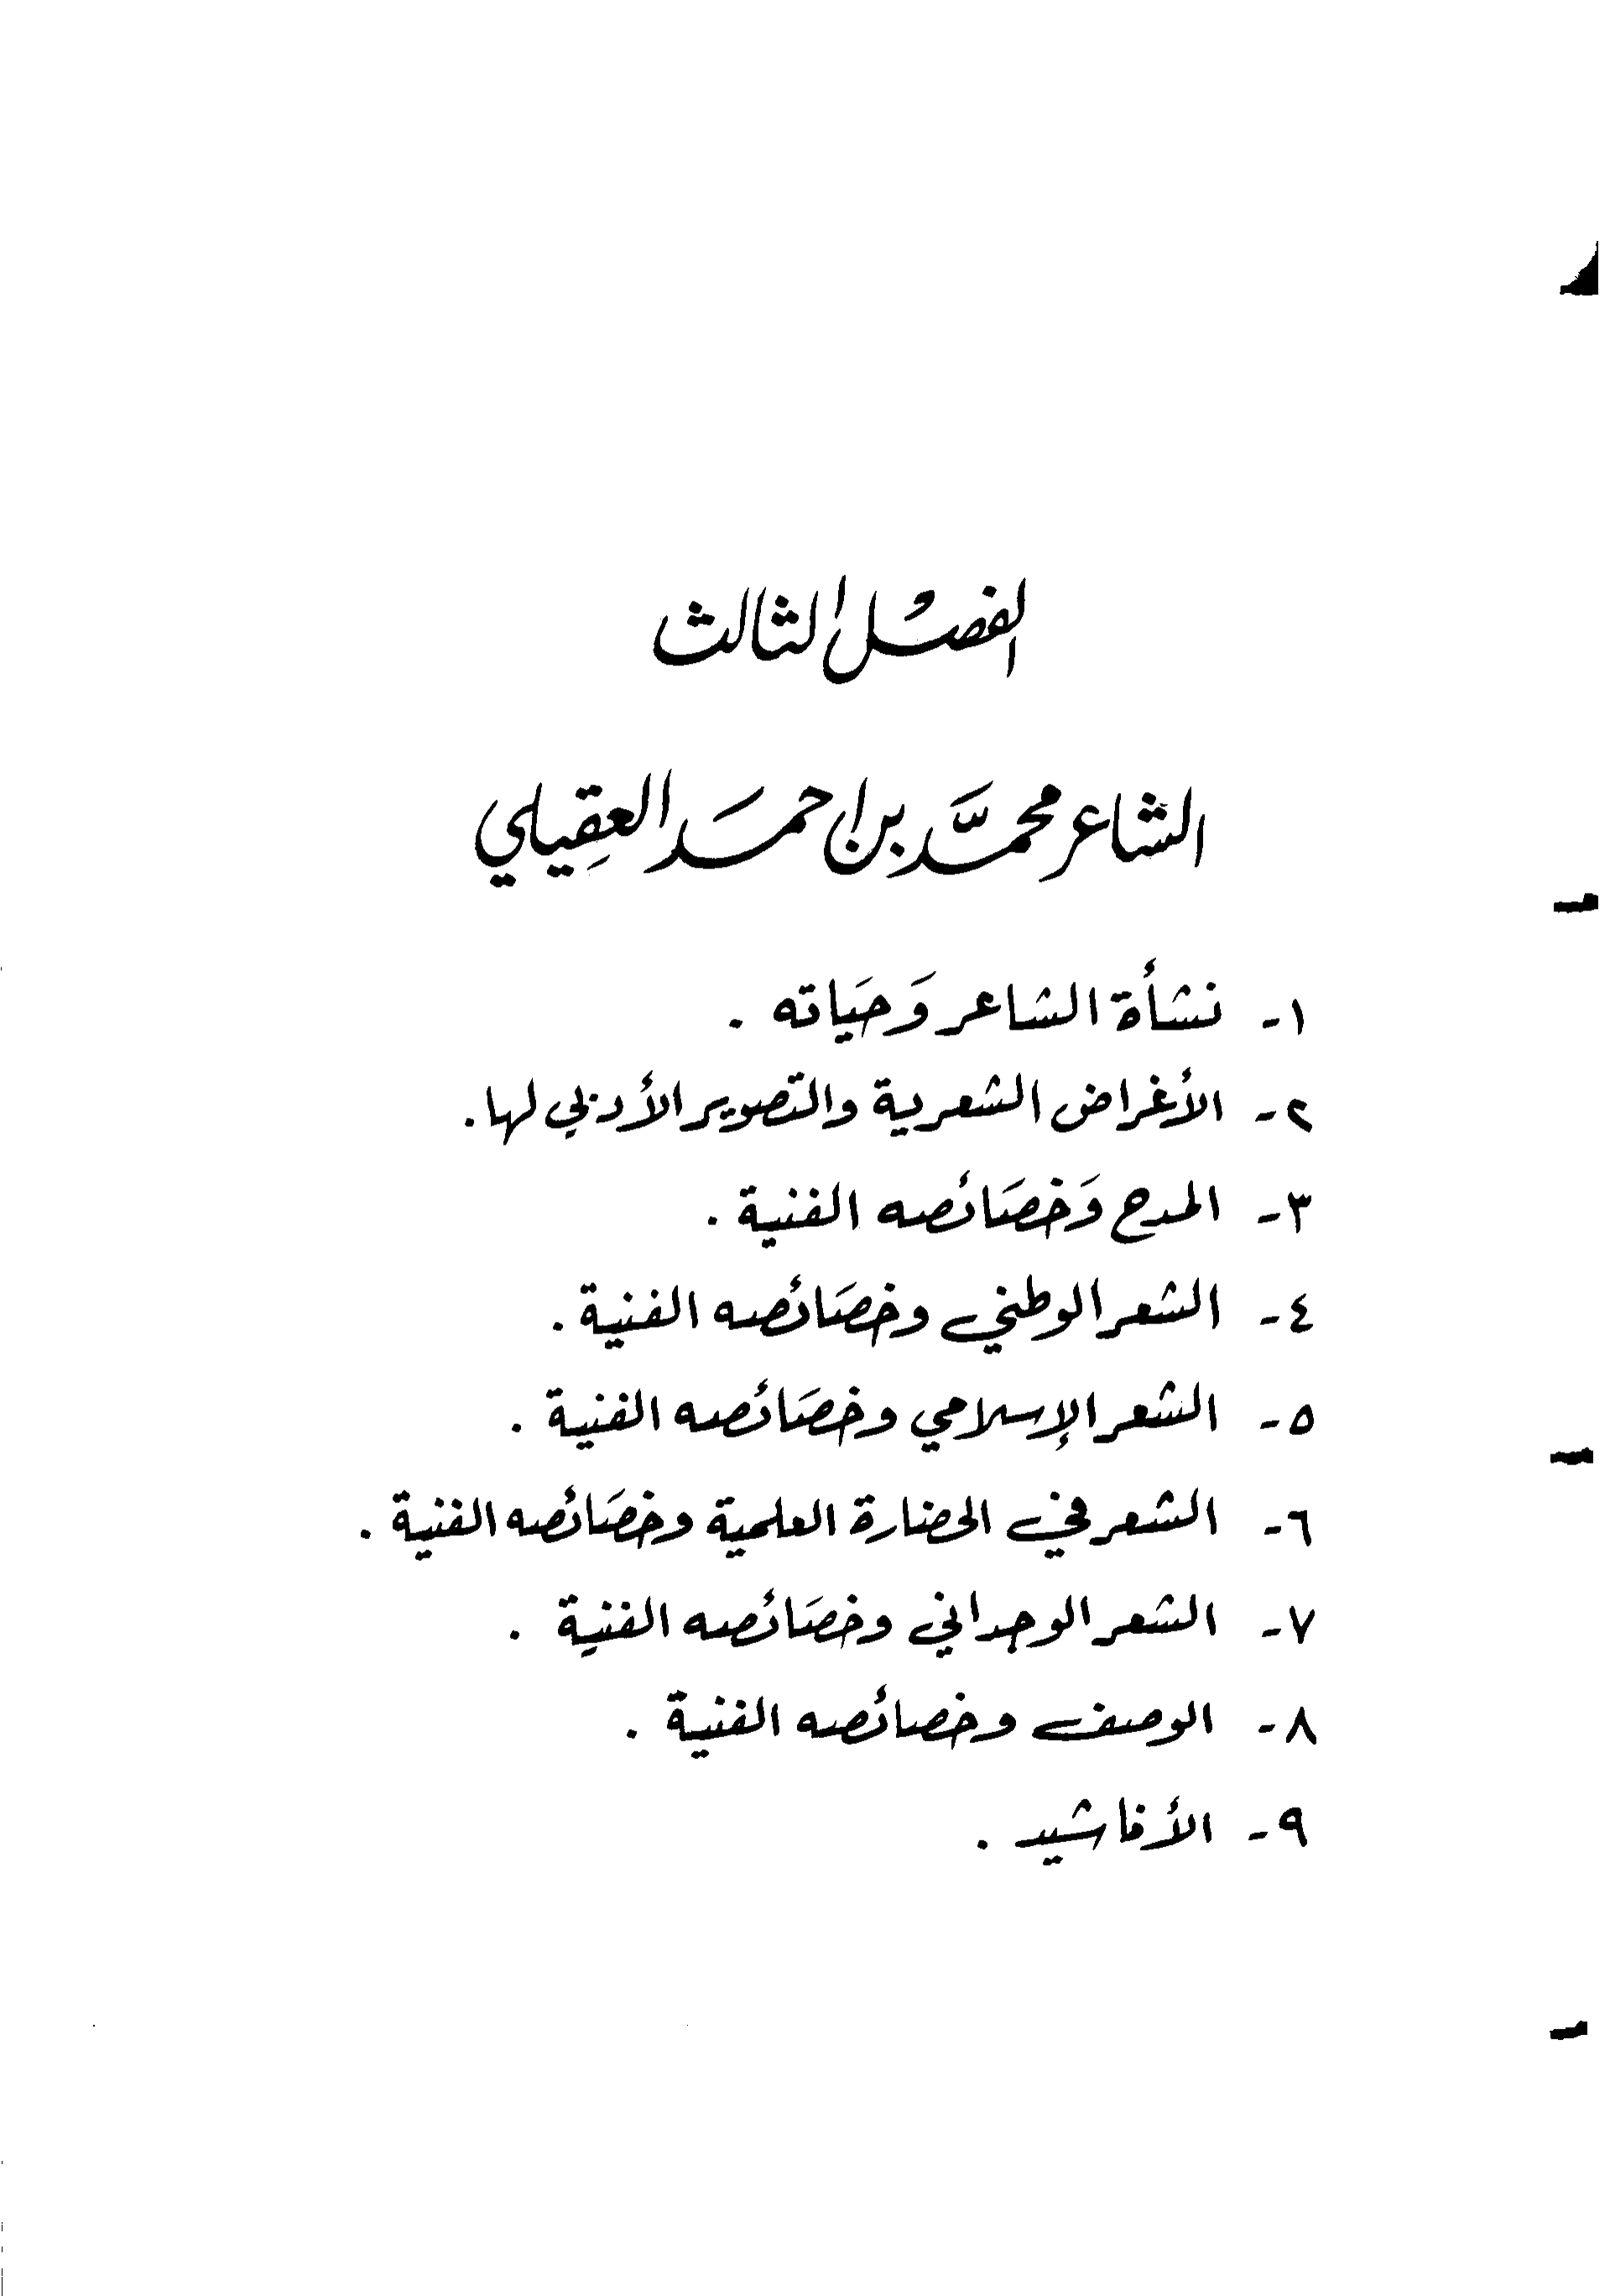 الفصل الثالث
الشاعر محمَّد بن احمَد العقِيلي
١- نشأة الشاعر وَحيَاته .
٢- الأغراض الشعرية والتصوير الأدبي لها.
٣- المدح وَخصَائصه الفنية .
٤- الشعر الوطني وخصَائصه الفنية .
٥- الشعر الإسلامي وخصَائصه الفنية .
٦- الشعر في الحضارة العلمية وخصَائصه الفنية .
٧- الشعر الوجداني وخصَائصه الفنية .
٨- الوصف وخصائصه الفنية .
٩- الأناشيد .